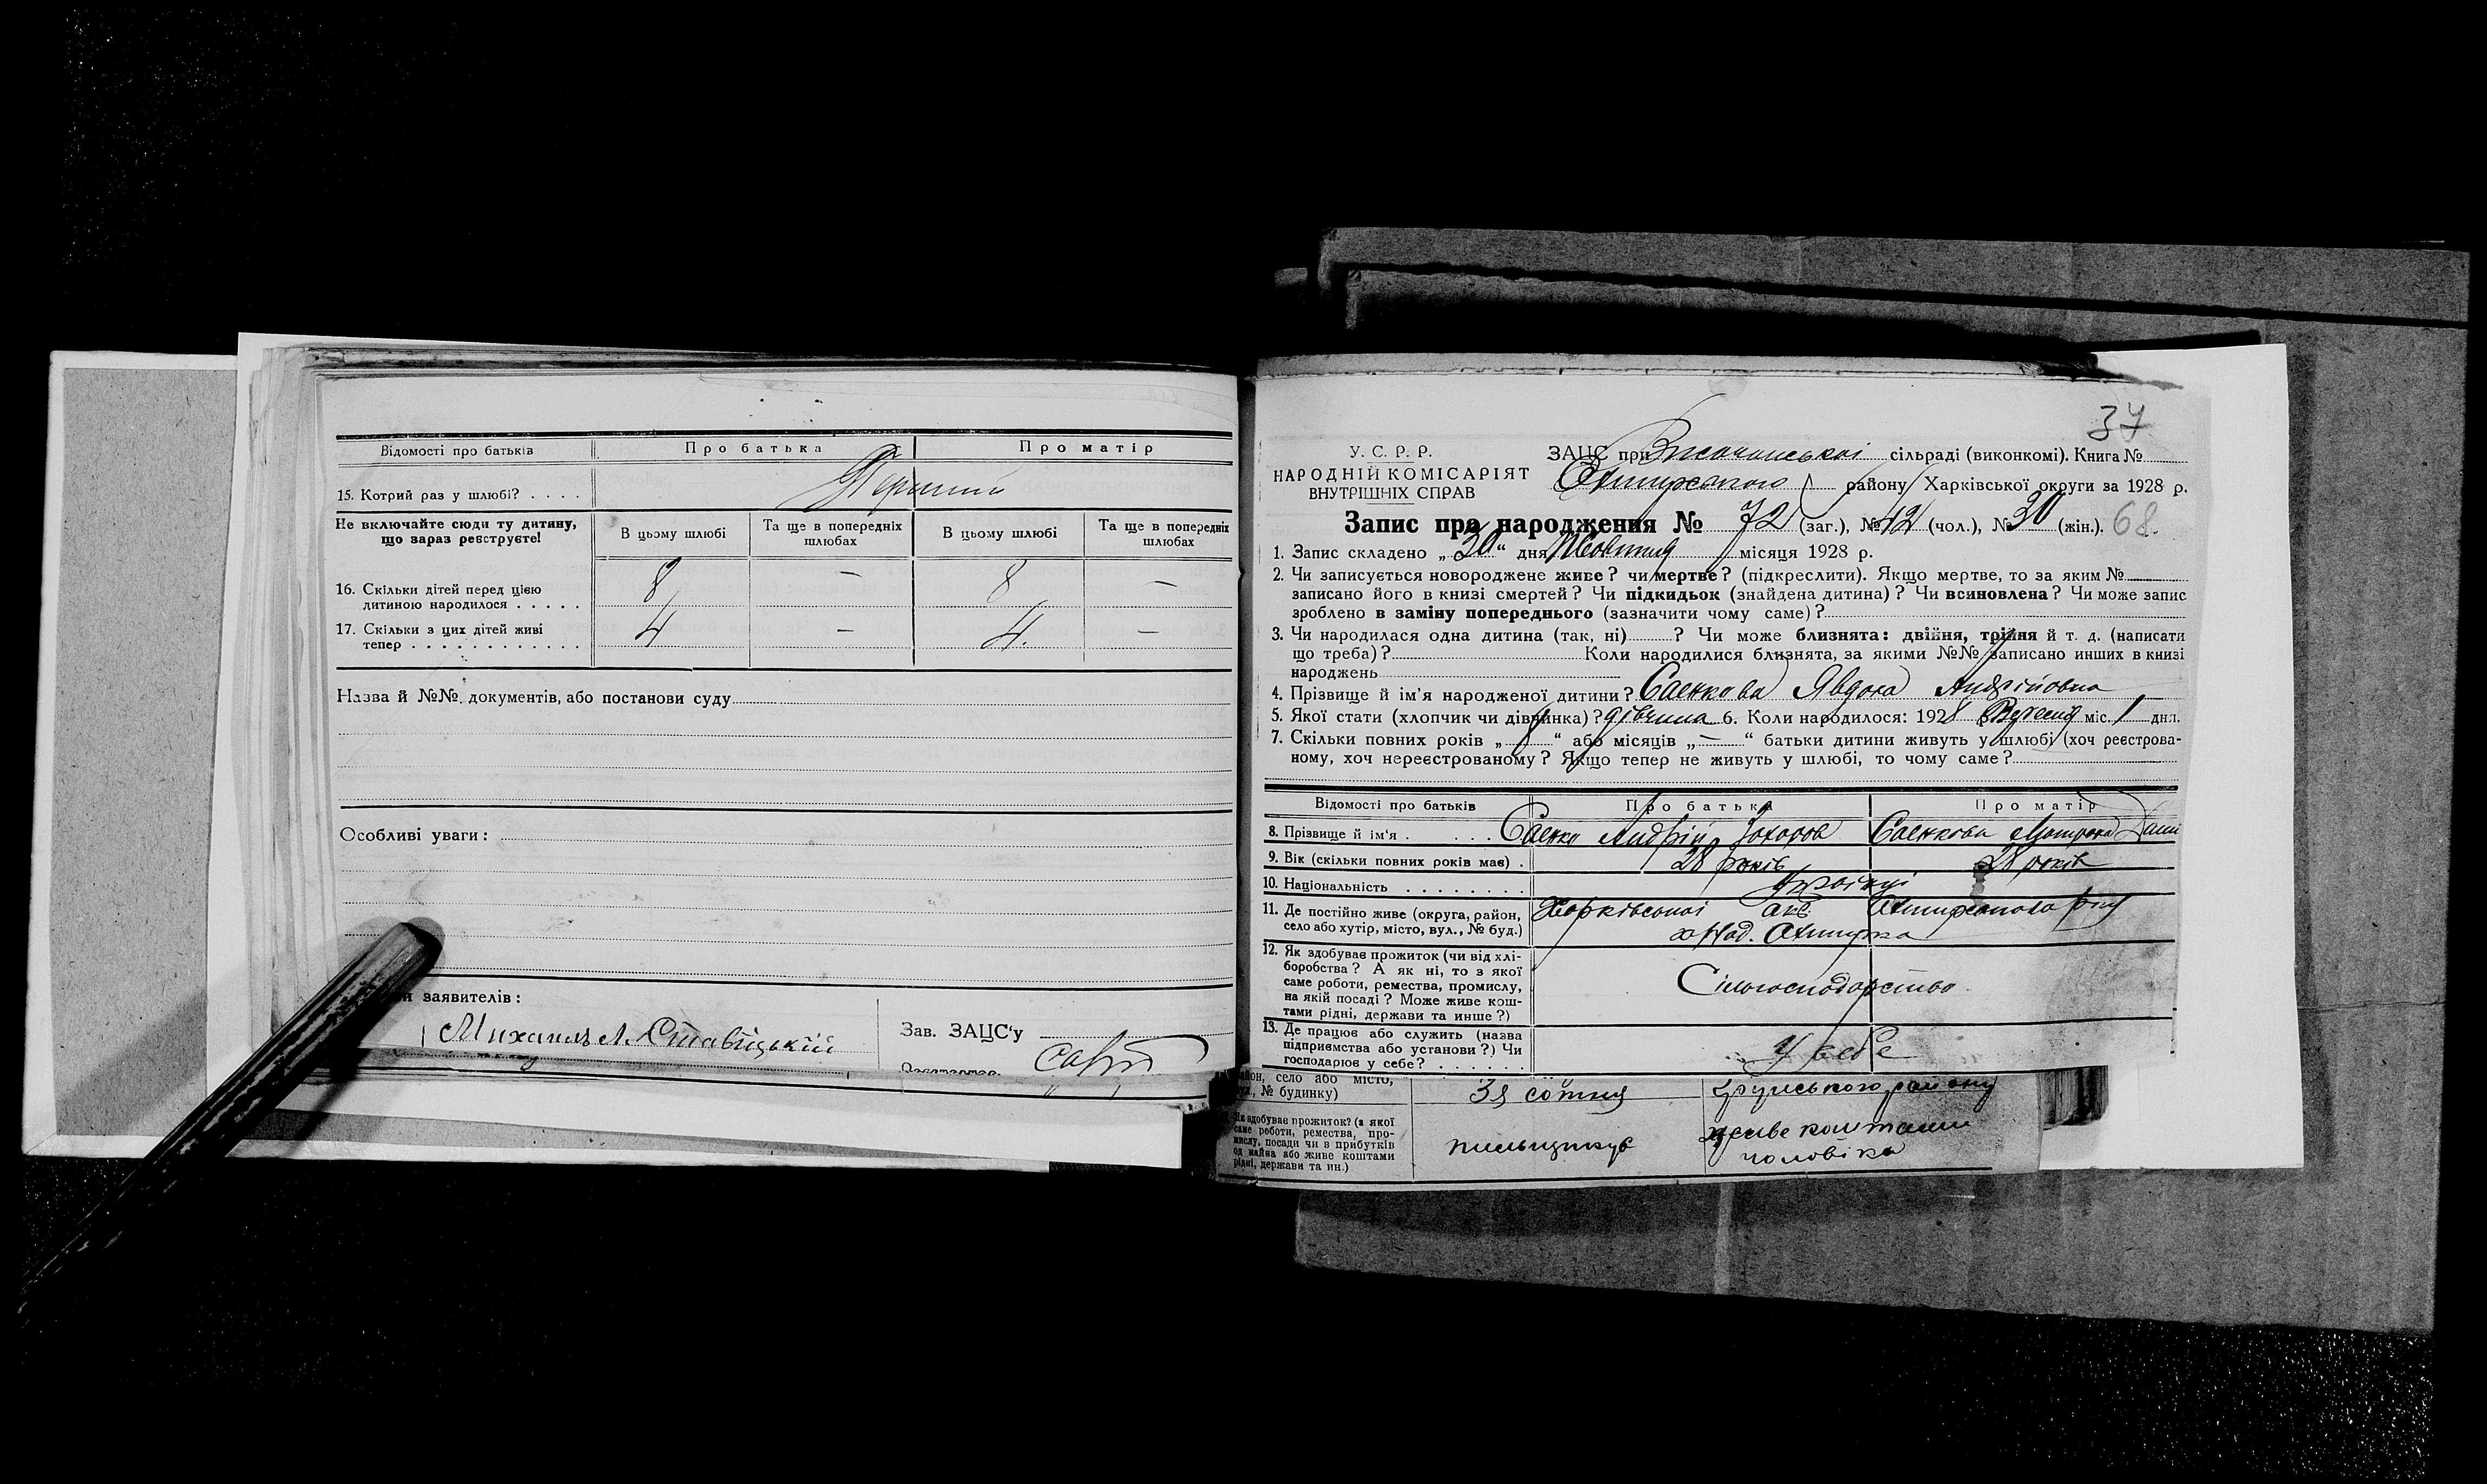 Відомості про батьків Про батька Про матір
15. Котрий раз у шлюбі? . . . .
Не включайте сюди ту дитину, що зараз реєструєте!
В цьому шлюбі Та ще в попередніх шлюбах В цьому шлюбі Та ще в попередніх шлюбах
16. Скільки дітей перед цією
дитиною народилося . . . . . 8 — 8 —
17. Скільки з цих дітей живі
тепер . . . . . . . . . . . . 4 — 4. —
Назва й №№ документів, або постанови суду
Особливі уваги:
заявителів:
Михаил Ставіцькій
Зав. ЗАЦС'у
37
У. С. Р. Р.
НАРОДНІЙ КОМІСАРІЯТ
ВНУТРІШНІХ СПРАВ
ЗАЦС при сільраді (виконкомі). Книга №
району Харківської округи за 1928 р.
Запис про народження № 72 (заг.), № 42 (чол.), № 30 (жін.). 68
1. Запис складено „30“ дня Жовтня місяця 1928 р.
2. Чи записується новороджене живе? чи мертве? (підкреслити). Якщо мертве, то за яким №
записано його в книзі смертей? Чи підкидьок (знайдена дитина)? Чи всиновлена? Чи може запис
зроблено в заміну попереднього (зазначити чому саме)?
3. Чи народилася одна дитина (так, ні) ? Чи може близнята: двійня, трійня й т. д. (написати
що треба)? Коли народилися близнята, за якими №№ записано инших в книзі
народжень
4. Прізвище й ім'я народженої дитини? Саєнкова Явдока Андрійовна
5. Якої стати (хлопчик чи дівчинка)? дівчина 6. Коли народилося: 1928 Вересня міс. 1 дня.
7. Скільки повних років „8“ або місяців „—“ батьки дитини живуть у шлюбі (хоч реєстрова-
ному, хоч нереєстрованому? Якщо тепер не живуть у шлюбі, то чому саме?
Відомості про батьків Про батька Про матір
8. Прізвище й ім'я . . . . . Саенко Андрій Захаров Саєнкова Мотрона
9. Вік (скільки повних років має) . 28 років 28 років
10. Національність . . . . . . . . Українці
11. Де постійно живе (округа, район,
село або хутір, місто, вул., № буд.)
Харківської окв.
Охтирка
12. Як здобуває прожиток (чи від хлі-
боробства? А як ні, то з якої
саме роботи, ремества, промислу,
на якій посаді? Може живе кош-
тами рідні, держави та инше?)
Сільгосподарство
13. Де працює або служить (назва
підприємства або установи?) Чи
господарює у себе? . . . . . . У себе
село або місто,
№ будинку) 3я сотня району
Як здобуває прожиток? (з якої
саме роботи, ремества, про-
мислу, посади чи в прибутків
од майна або живе коштами
рідні, держави та ин.)
пильщикує
живе коштами
чоловіка